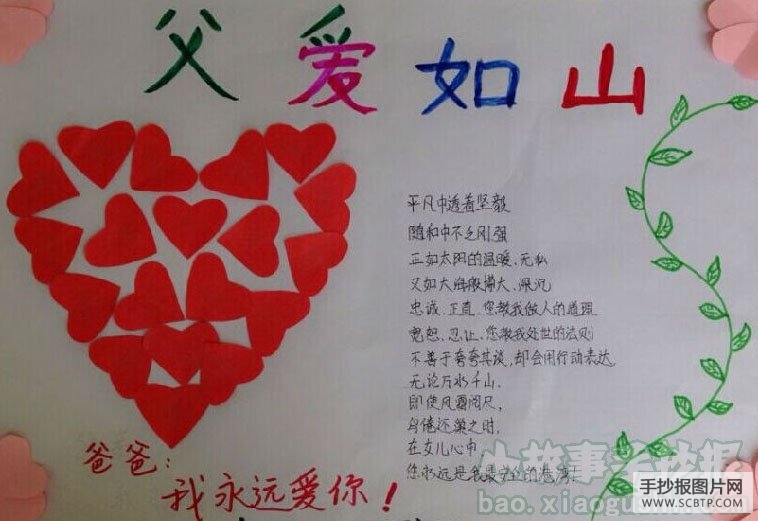 父爱如山
平凡中透着坚毅
随和中不乏刚强
正如太阳的温暖、无私
又如大海般博大、深沉
忠诚、正直、您教我做人的道理
宽恕、忍让、您教我处世的法则
不善于夸夸其谈，却会用行动表达
无论万水千山，
即使风霜
倦还巢之时，
在女儿心中，
您永远是我最安全的港湾！
爸爸：
我永远爱你！
小故事
bao.xiaogu
手抄报图片网
WWW.SCBTP.COM